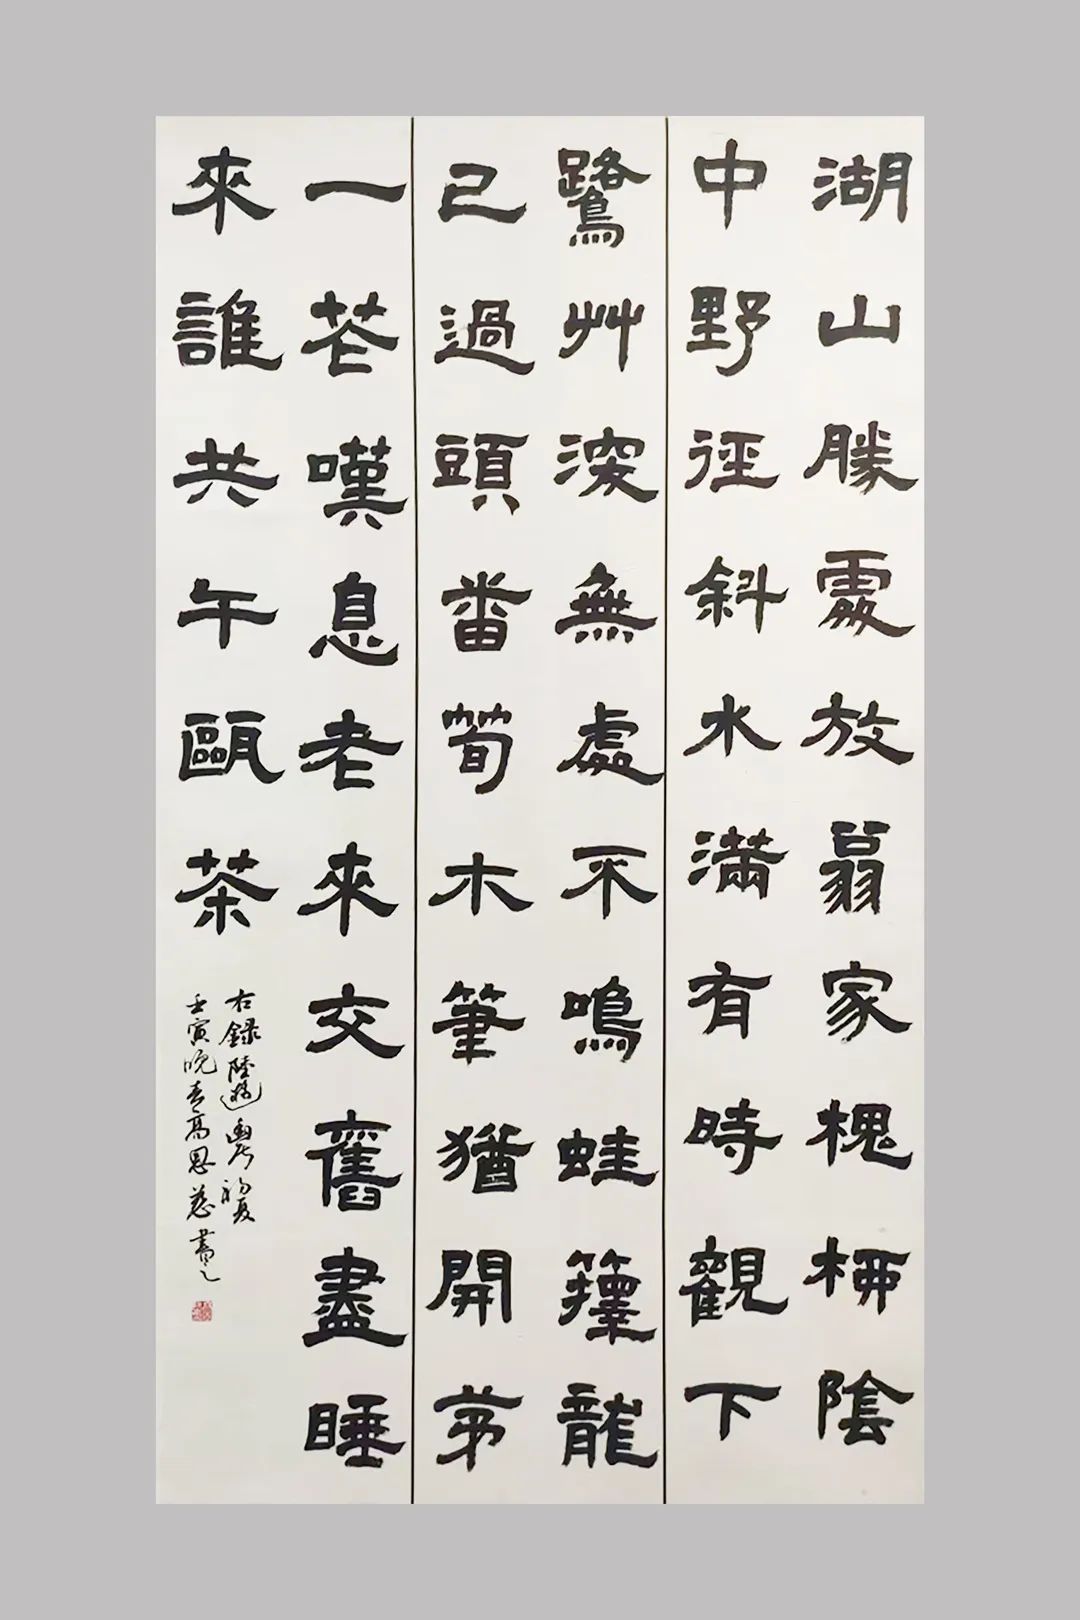 湖山勝處放翁家槐柳陰
中野徑斜水滿有時觀下
鷺艸深無處不鳴蛙籜龍
已過頭番筍木筆猶開苐
一芲嘆息老來交舊盡睡
來誰共午甌茶
右錄陸游幽居初夏
壬寅晚春高恩慈書之